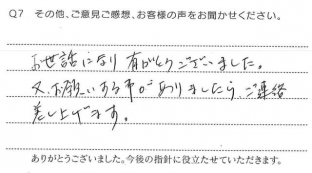 Q7 その他、ご意見ご感想、お客様の声をお聞かせください。
お世話になり有がとうございました。
又、お願いする事がありましたら、ご連絡
差し上げます。
ありがとうございました。今後の指針に役立たせていただきます。